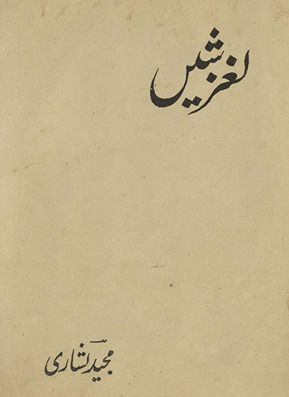 لغزشیں
مجید نشاری